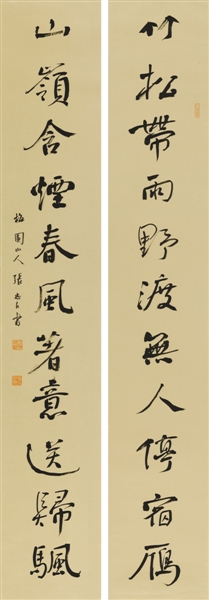 竹松帶雨野渡無人停宿雁
山嶺含煙春風著意送歸颿
梅園山人張書